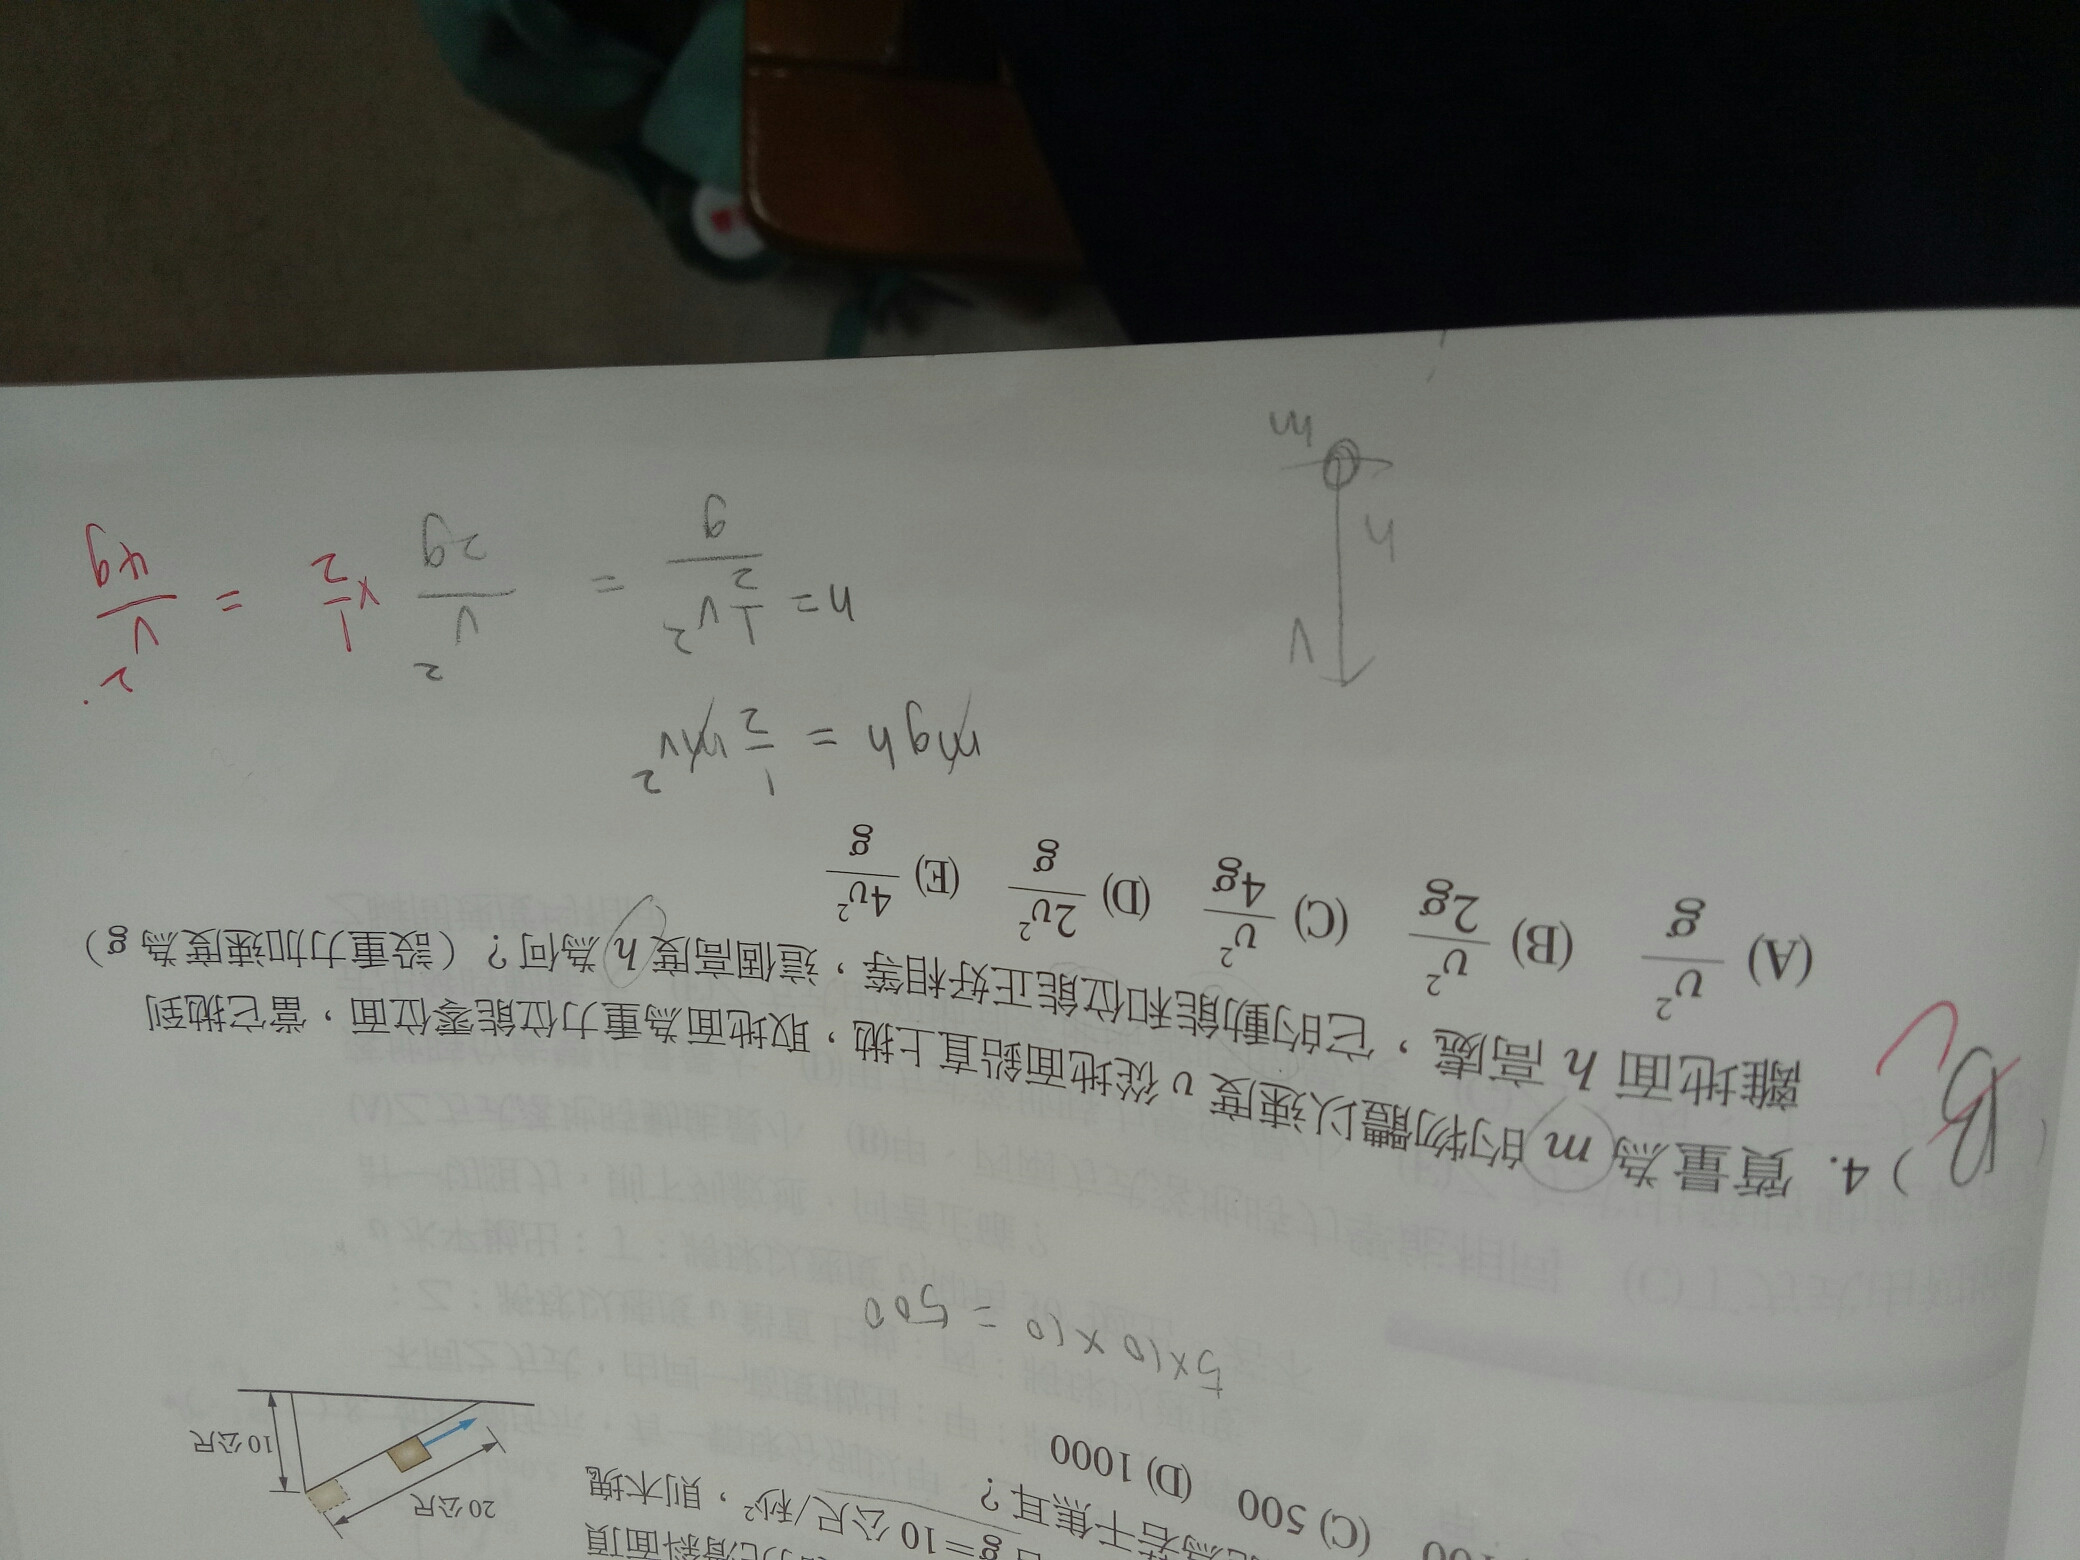 g=10 公尺/秒²，則木塊
若干焦耳？
(C) 500 (D) 1000
20公尺
10公尺
5×10×10 = 500
B
) 4. 質量為 m 的物體以速度 υ 從地面鉛直上拋，取地面為重力位能零位面，當它拋到
離地面 h 高處，它的動能和位能正好相等，這個高度 h 為何？（設重力加速度為 g）
(A) υ²/g (B) υ²/2g (C) υ²/4g (D) 2υ²/g (E) 4υ²/g
mgh = 1/2 mv²
h = 1/2 v²/g = v²/2g × 1/2 = v²/4g
V
h
m